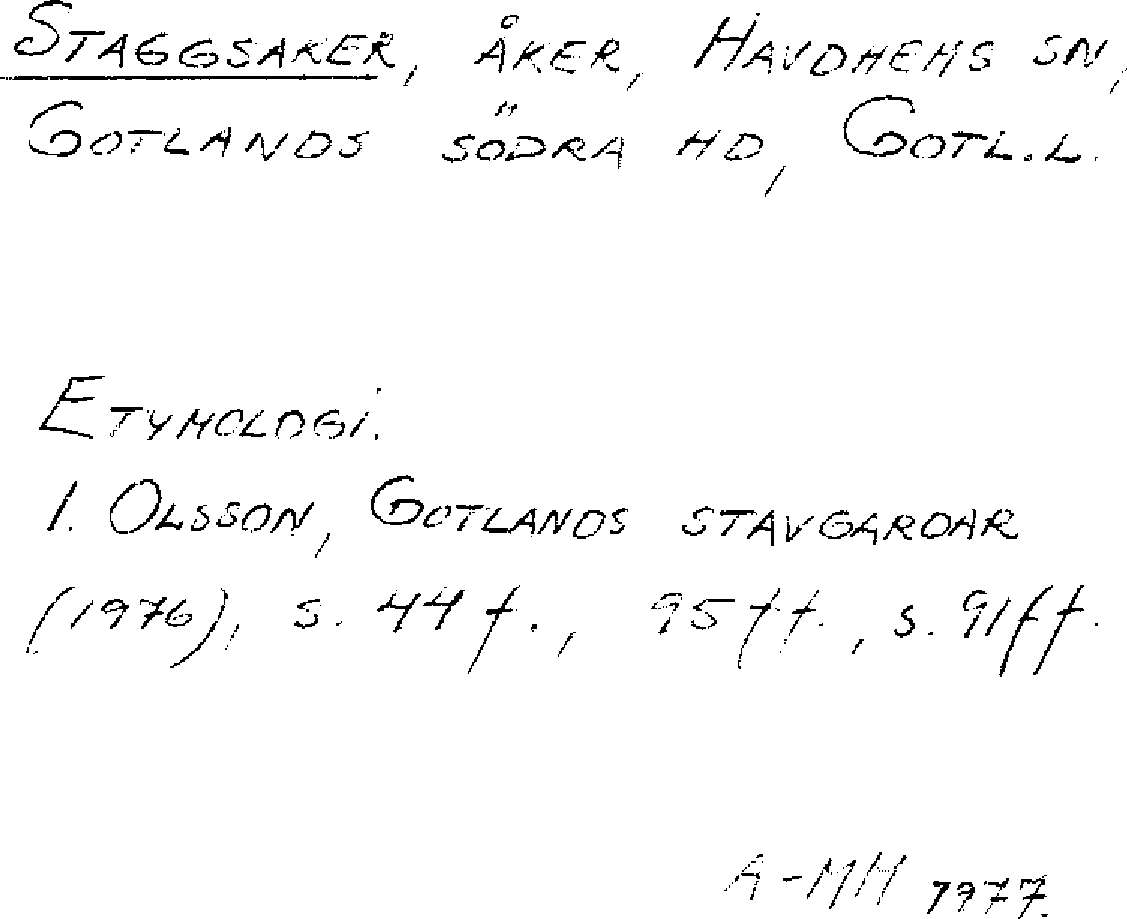 STAGGSAKER, ÅKER, HAVDHEMS SN,
GOTLANDS SÖDRA HD, GOTL.L.
ETYMOLOGI.
I. OLSSON, GOTLANDS STAVGARDAR
(1976), S. 44 f., 95 ff., S. 91 ff.
A-MH 1977.